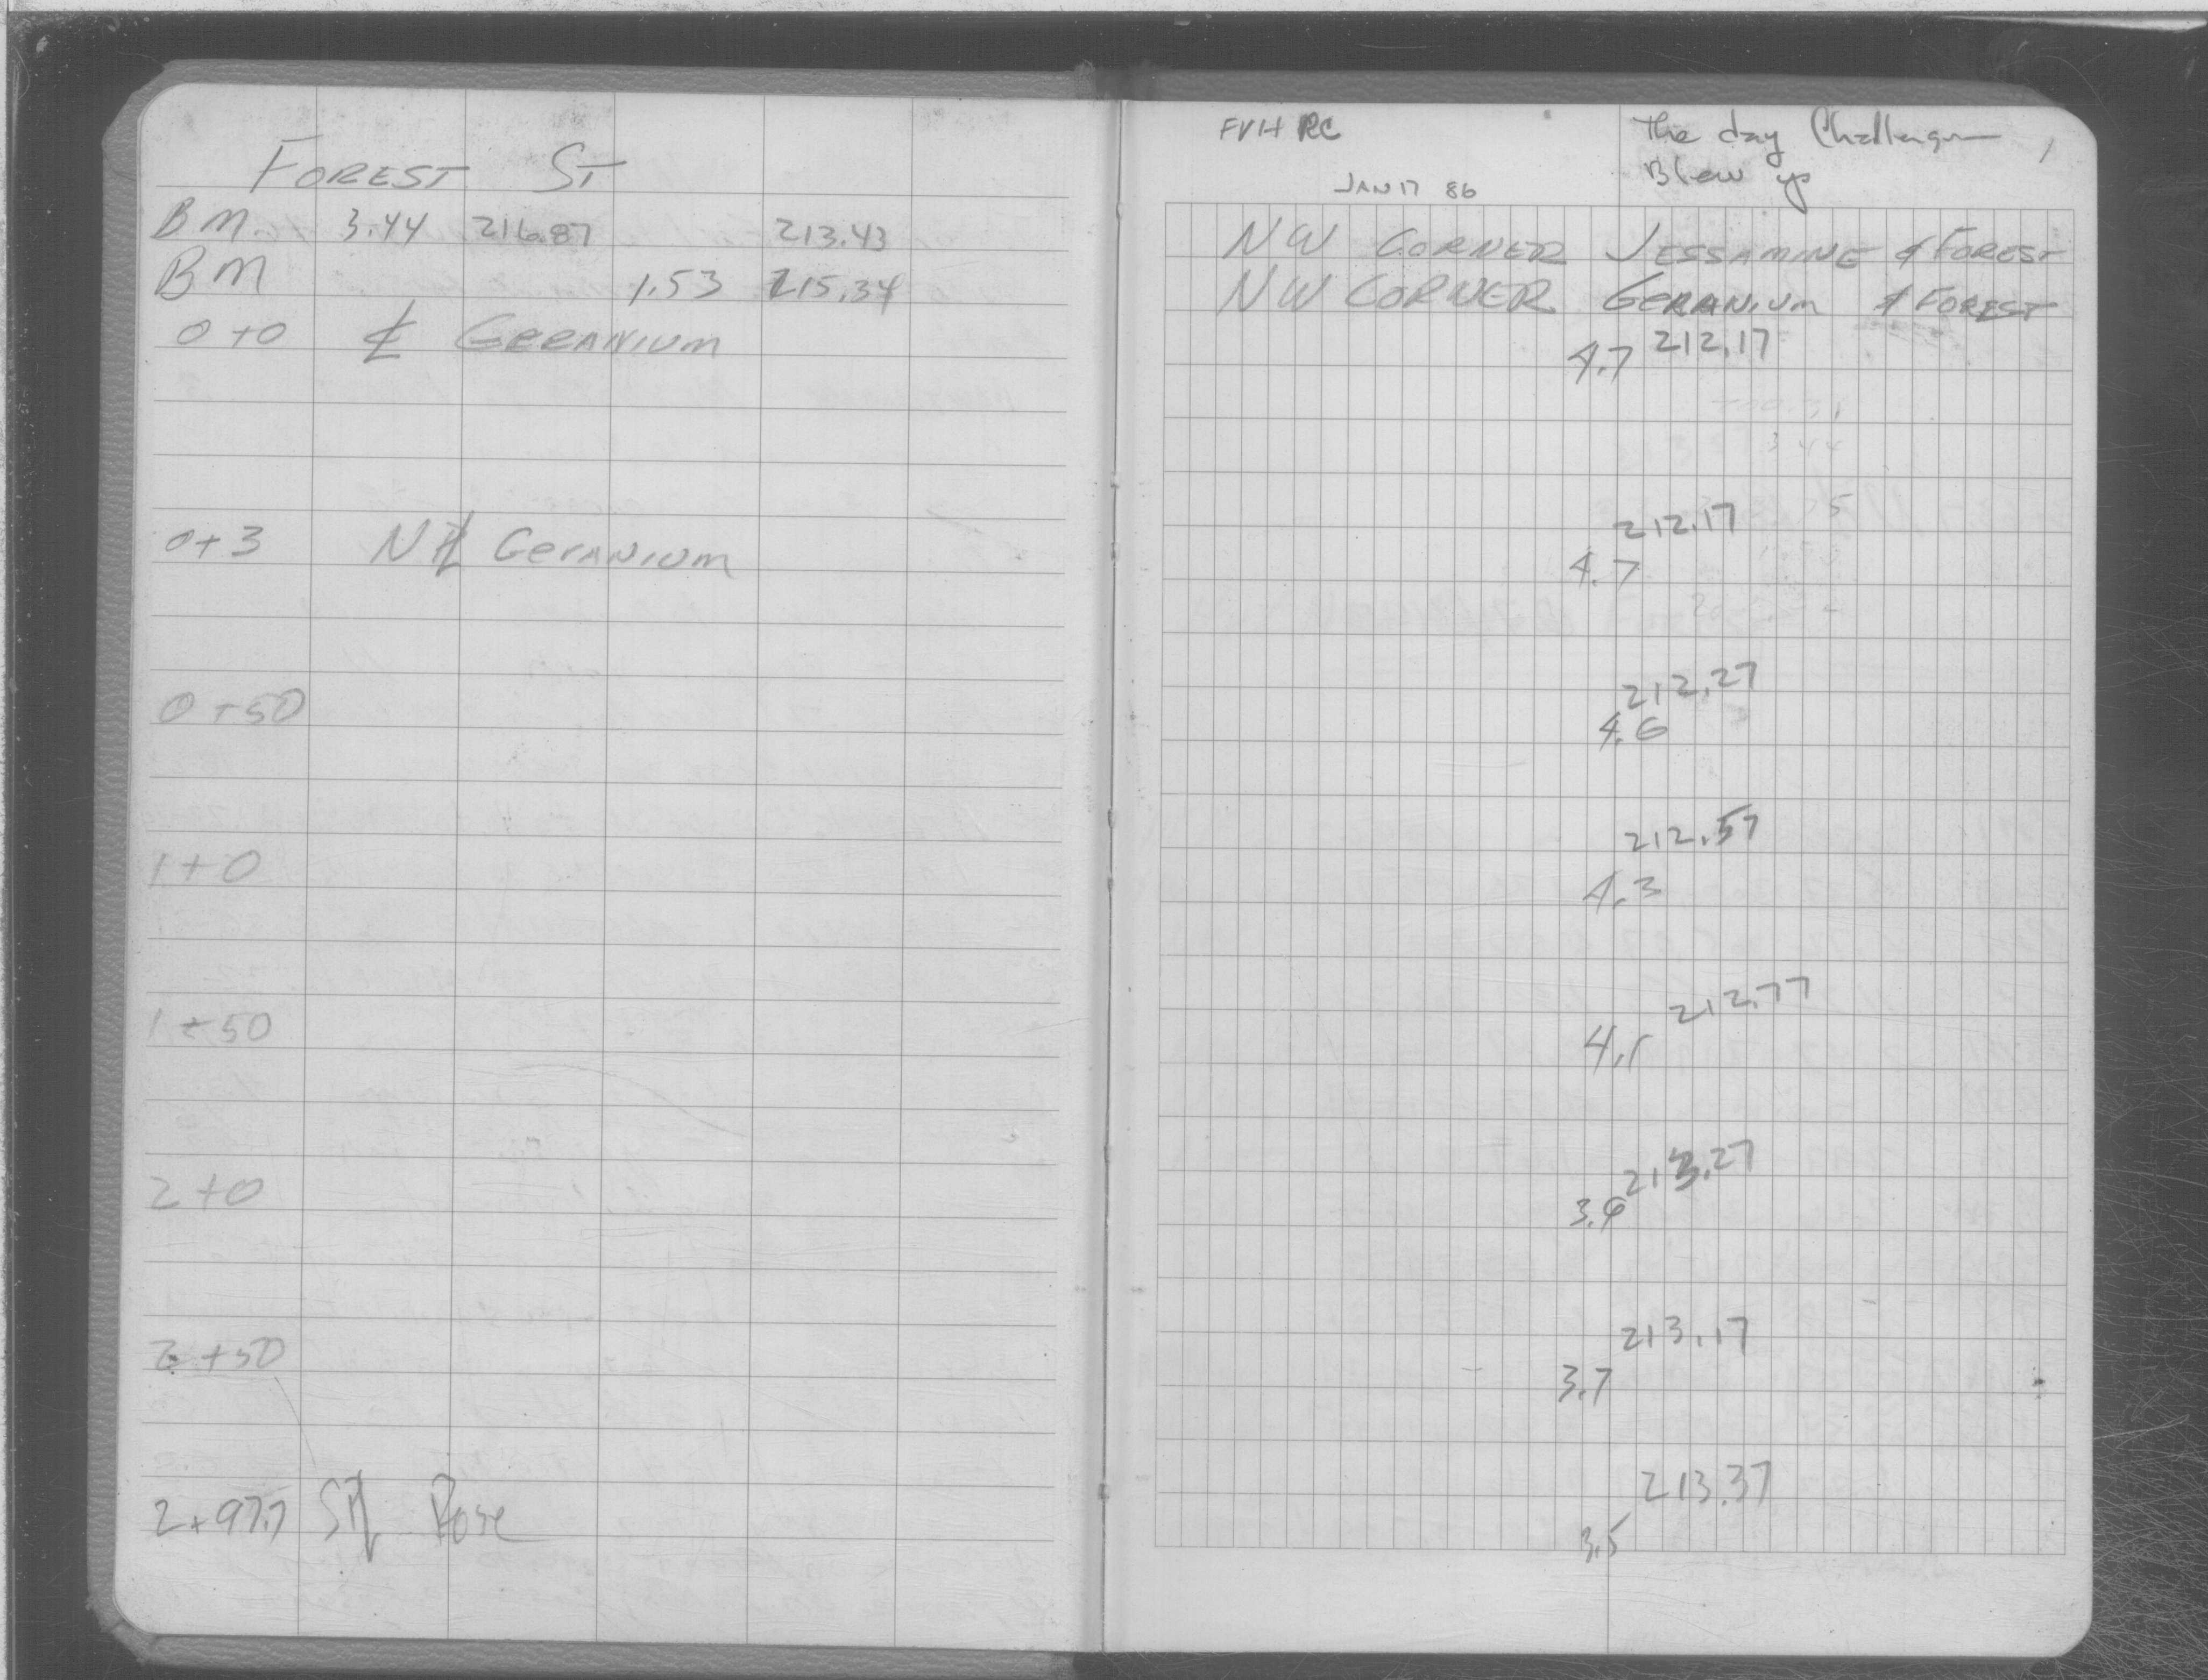 FOREST ST
BM 3.44 216.87 213.43
BM 1.53 215.34
0+0 ℄ GERANIUM
0+3 N℄ GERANIUM
0+50
1+0
1+50
2+0
2+50
2+97.7 S℄ Rose
FVH RC
The day Challenger 1
Blew up
JAN 17 86
NW CORNER JESSAMINE & FOREST
NW CORNER GERANIUM & FOREST
212.17
4.7
212.17
4.7
212.27
4.6
212.57
4.3
212.77
4.1
213.27
3.6
213.17
3.7
213.37
3.5